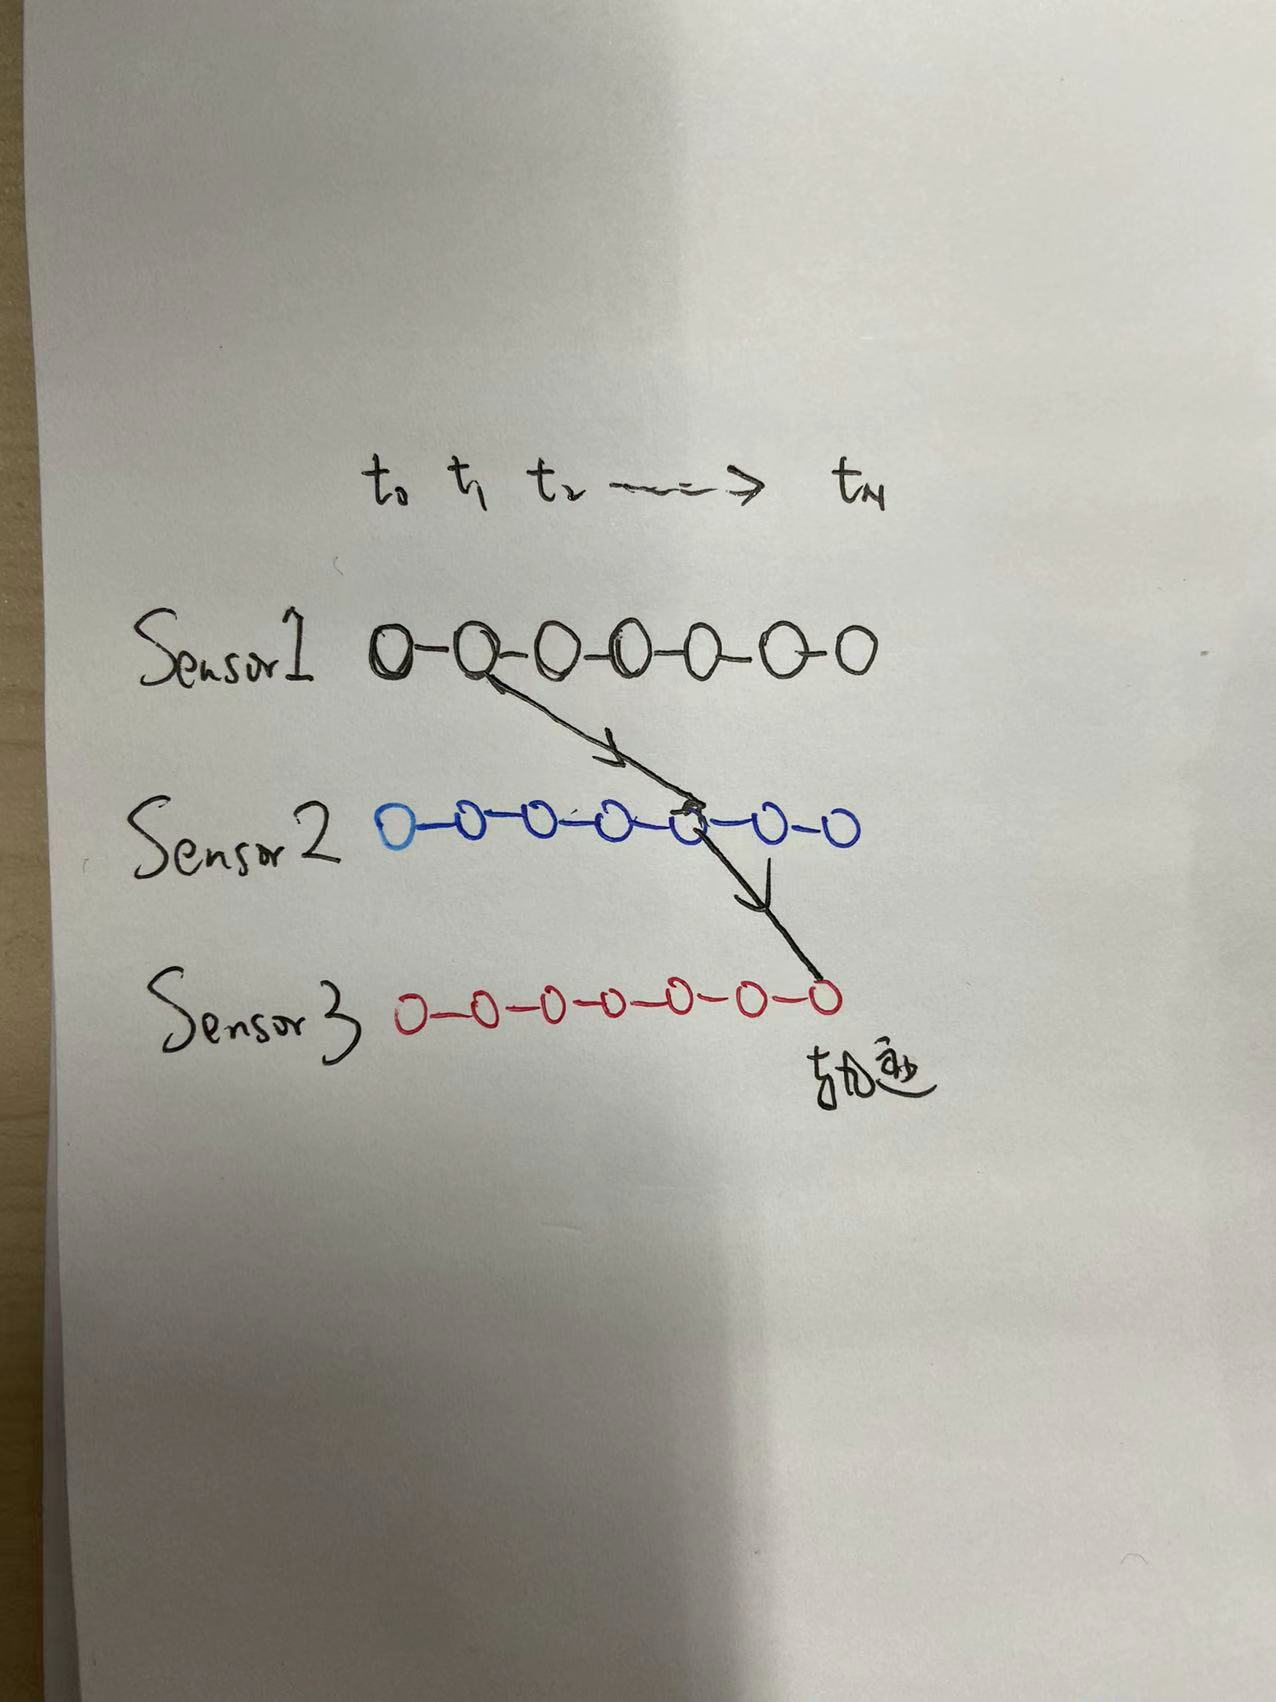 t₀ t₁ t₂ ----> t_N
Sensor1
Sensor2
Sensor3
轨迹